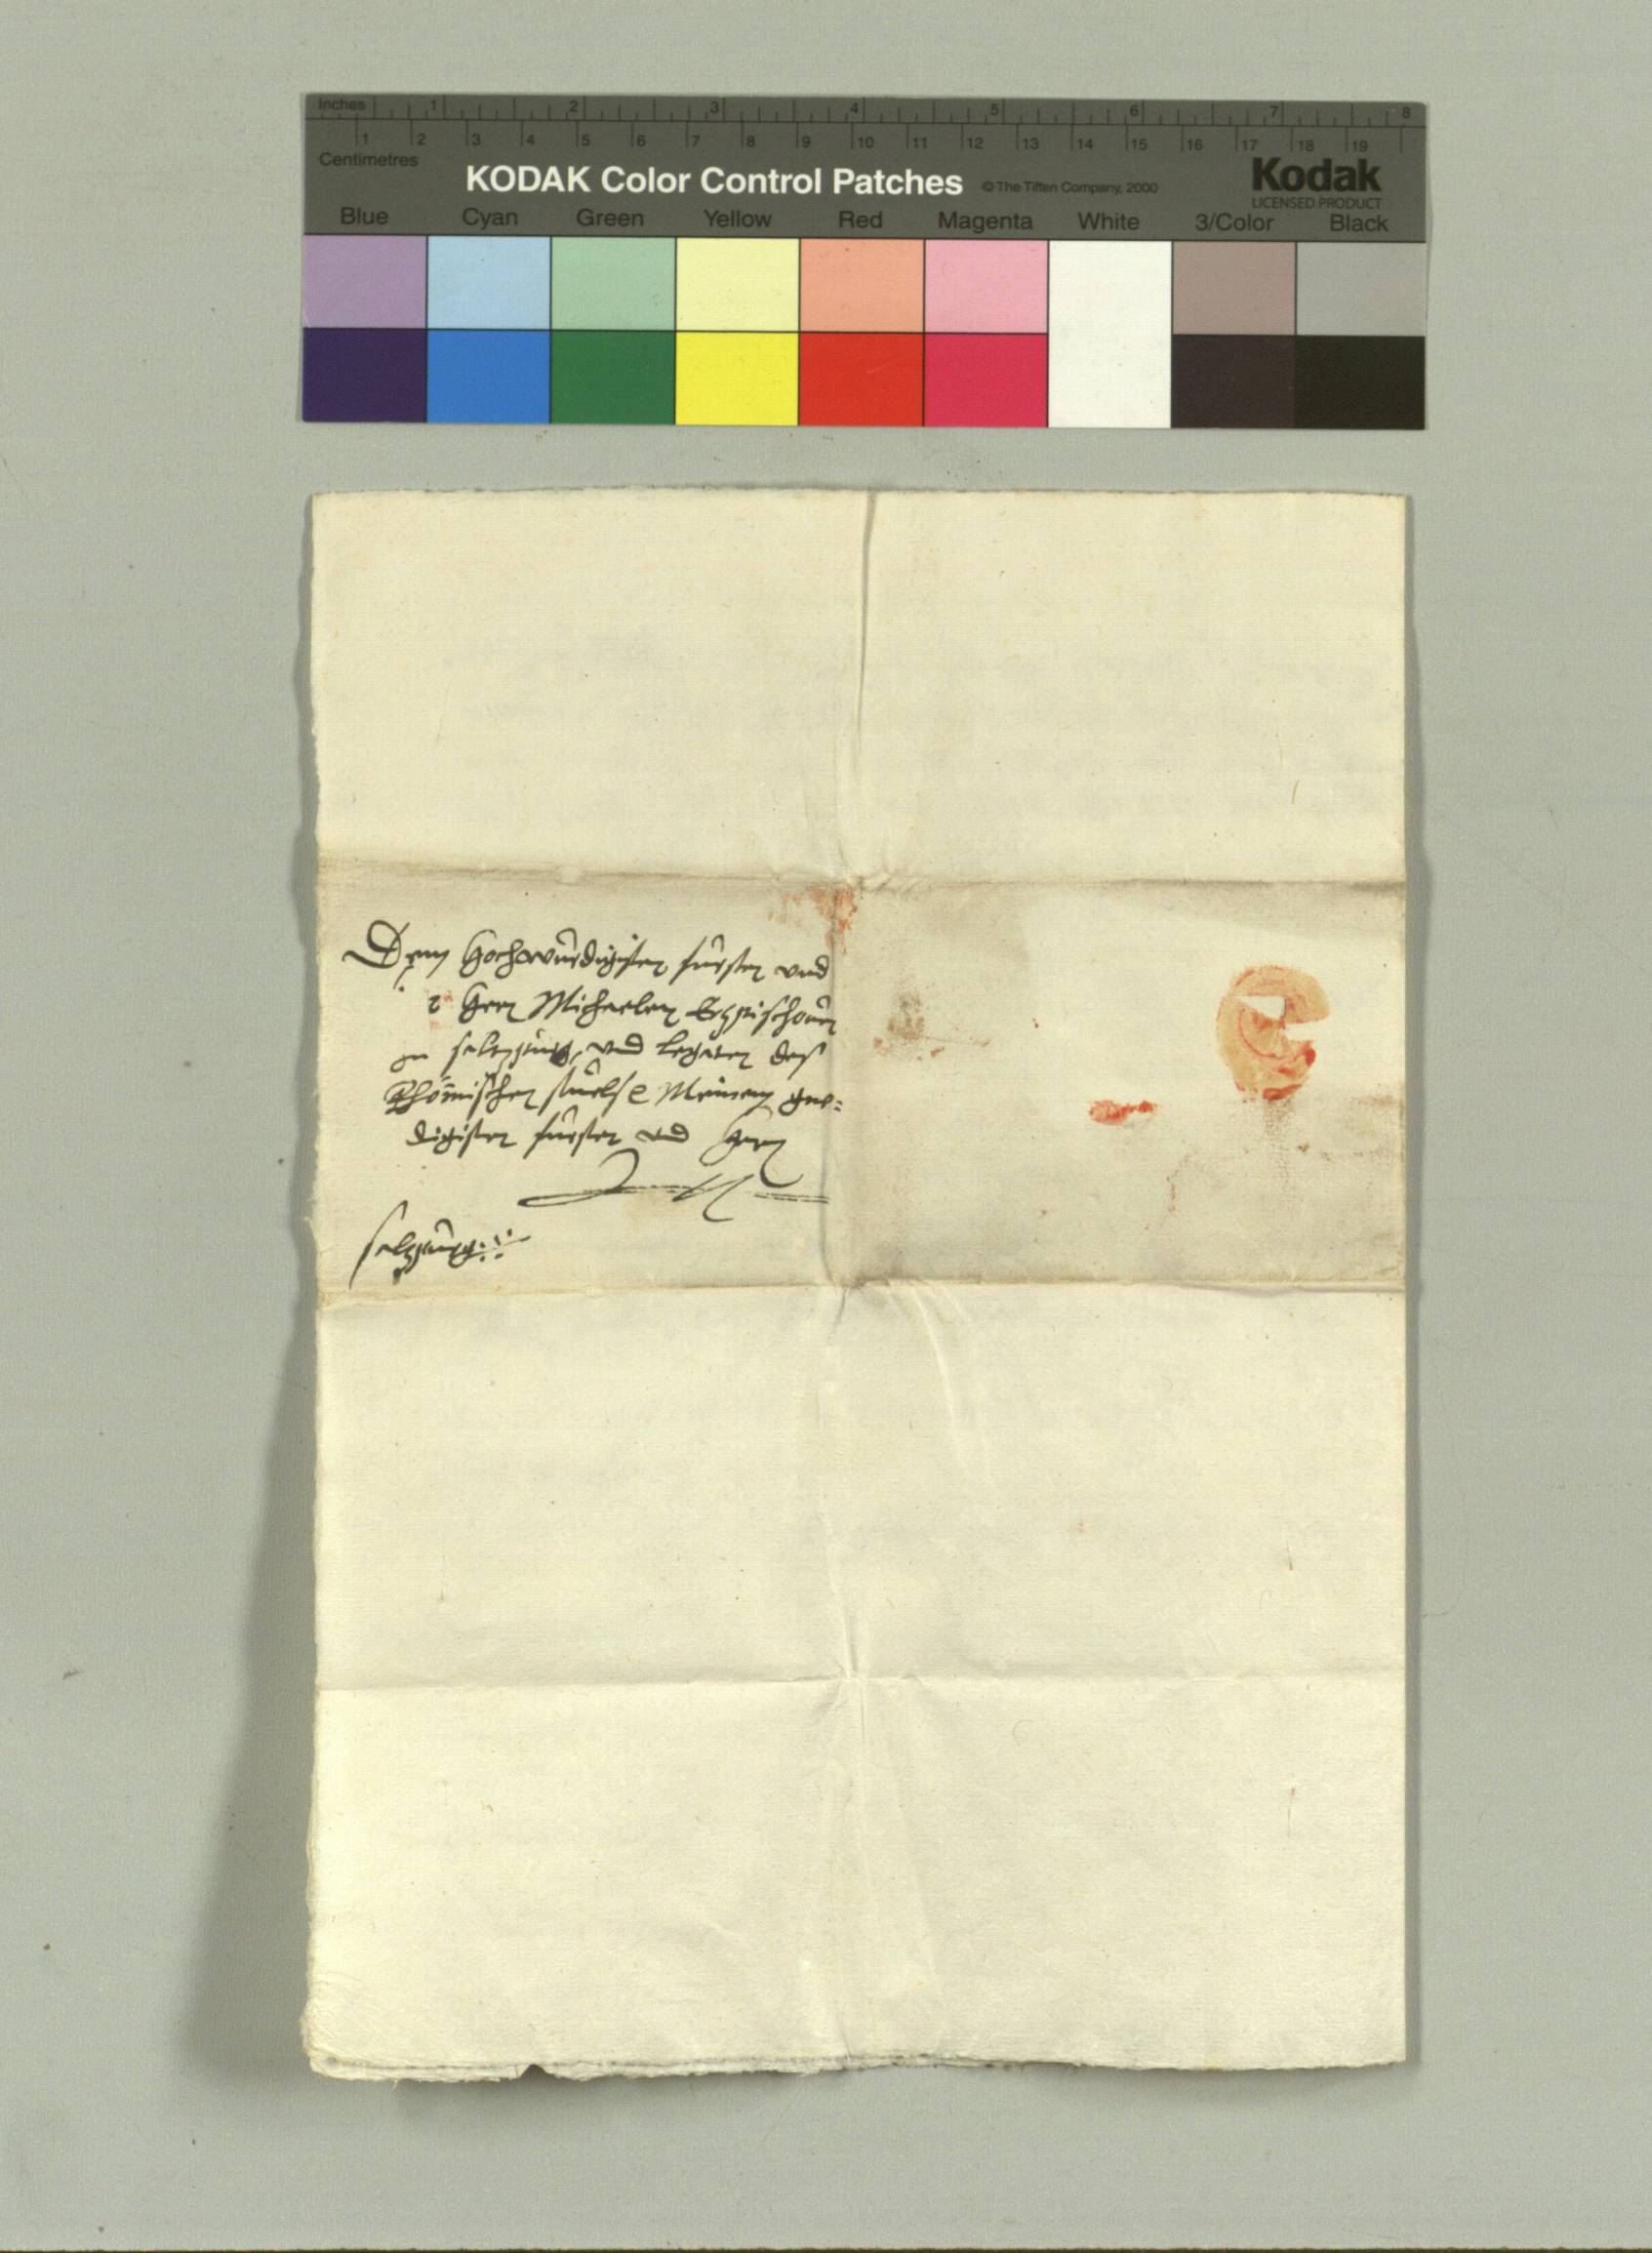 Inches 1 2 3 4 5 6 7 8
1 2 3 4 5 6 7 8 9 10 11 12 13 14 15 16 17 18 19
Centimetres
KODAK Color Control Patches ©The Tiffen Company, 2000 Kodak
LICENSED PRODUCT
Blue Cyan Green Yellow Red Magenta White 3/Color Black
Dem Hochwürdigisten fürsten vnd
Herrn Michaelen Ertzpischouen
zu saltzpurg, vnd legaten des
Rhömischen stuels Meinem gne=
digisten fürsten vnd Herrn
saltzpurg